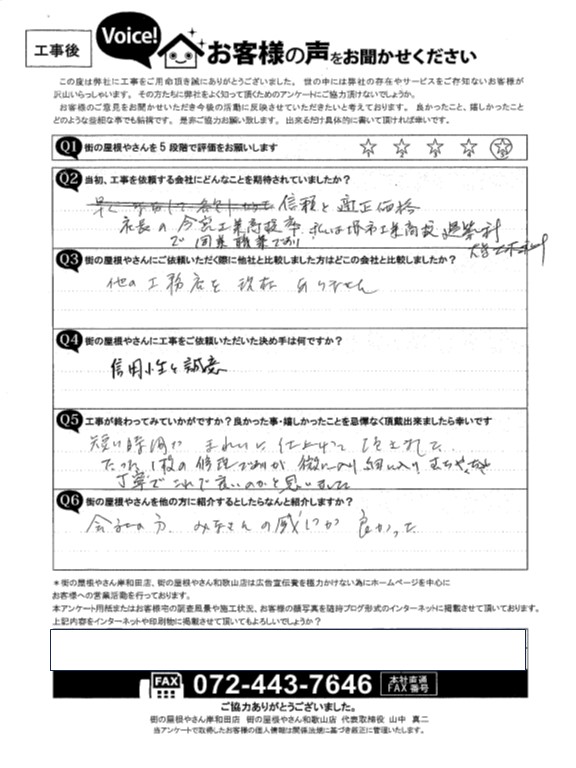 工事後
Voice!
お客様の声をお聞かせください
この度は弊社に工事をご用命頂き誠にありがとうございました。世の中には弊社の存在やサービスをご存知ないお客様が
沢山いらっしゃいます。その方たちに弊社をよく知って頂くためのアンケートにご協力頂けないでしょうか。
お客様のご意見をお聞かせいただき今後の活動に反映させていただきたいと考えております。良かったこと、嬉しかったこと
どのような些細な事でも結構です。是非ご協力お願い致します。出来るだけ具体的に書いて頂ければ幸いです。
Q1 街の屋根やさんを5段階で評価をお願いします
Q2 当初、工事を依頼する会社にどんなことを期待されていましたか?
信頼と適正価格
社長の今宮工業高校卒 私は堺市工業高校建築科
で同業職業であり
Q3 街の屋根やさんにご依頼いただく際に他社と比較しました方はどこの会社と比較しましたか?
他の工務店を現在ありません
Q4 街の屋根やさんに工事をご依頼いただいた決め手は何ですか?
信用性と誠意
Q5 工事が終わってみていかがですか?良かった事・嬉しかったことを忌憚なく頂戴出来ましたら幸いです
短い時間できれいに仕上げて頂きました
たった1枚の修理であるが微に入り細に入り
丁寧でこれで良いのかと思いました
Q6 街の屋根やさんを他の方に紹介するとしたらなんと紹介しますか?
会社の方、みなさんの感じが良かった
*街の屋根やさん岸和田店、街の屋根やさん和歌山店は広告宣伝費を極力かけない為にホームページを中心に
お客様への営業活動を行っております。
本アンケート用紙またはお客様宅の調査風景や施工状況、お客様の顔写真を随時ブログ形式のインターネットに掲載させて頂いております。
上記内容をインターネットや印刷物に掲載させて頂いてもよろしいでしょうか?
FAX 072-443-7646 本社直通FAX番号
ご協力ありがとうございました。
街の屋根やさん岸和田店 街の屋根やさん和歌山店 代表取締役 山中 真二
当アンケートで取得したお客様の個人情報は関係法規に基づき厳正に管理いたします。